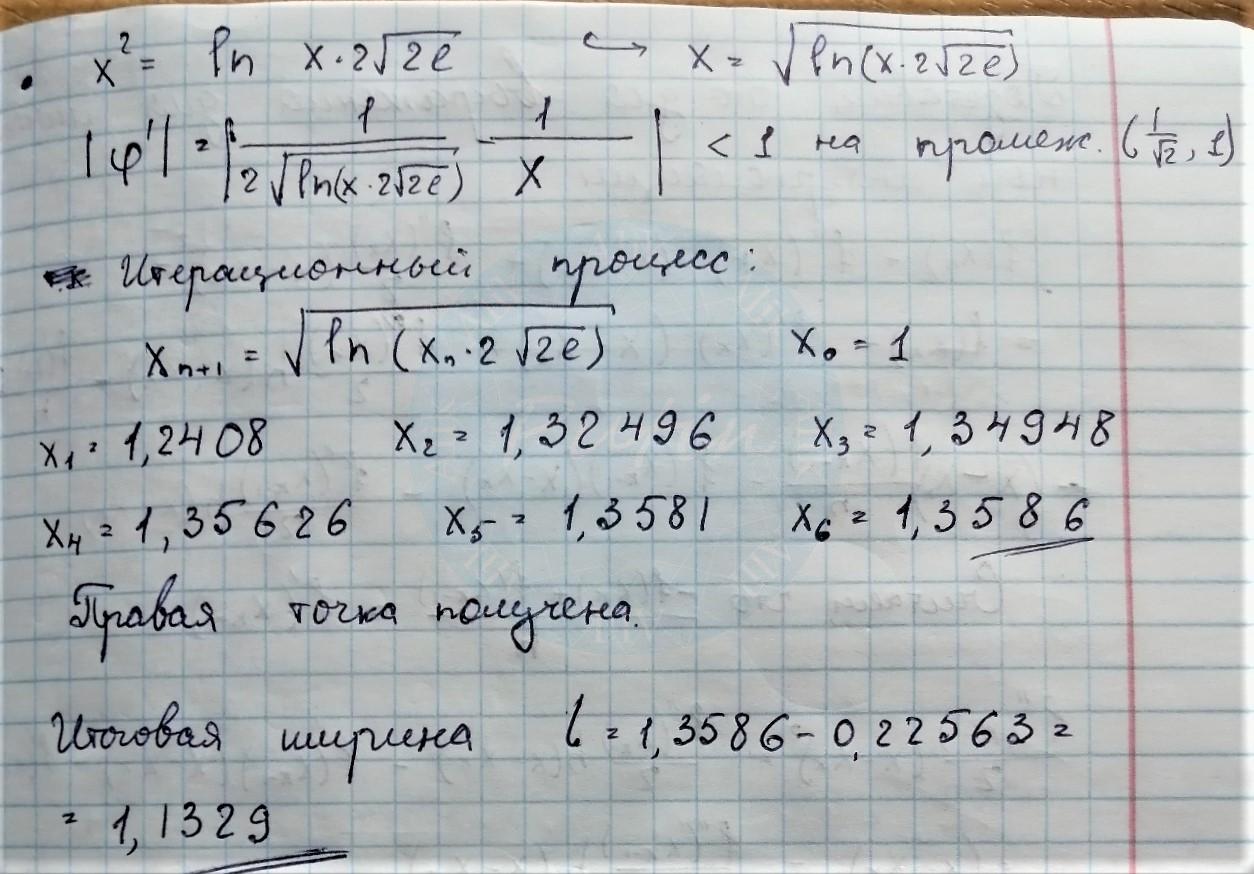 • x² = ln x·2√2e ↪ x = √ln(x·2√2e)
|φ'| = |1/(2√ln(x·2√2e)) · 1/x| < 1 на промеж. (1/√2, 1)
Итерационный процесс:
xₙ₊₁ = √ln(xₙ·2√2e) x₀ = 1
x₁ = 1,2408 x₂ = 1,32496 x₃ = 1,34948
x₄ = 1,35626 x₅ = 1,3581 x₆ = 1,3586
Правая точка получена.
Итоговая ширина l = 1,3586 - 0,22563 =
= 1,1329